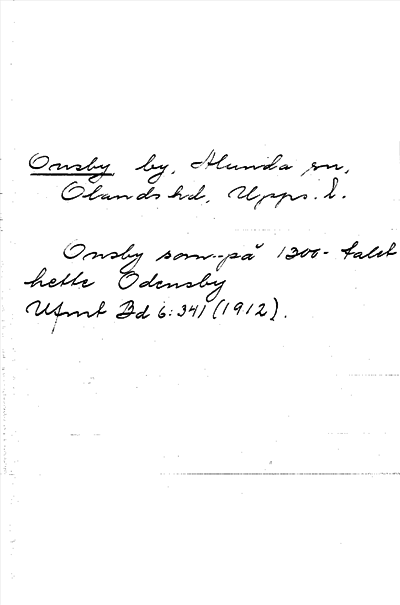 Onsby by, Alunda sn,
Olands hd, Upps. l.
Onsby som på 1300-talet
hette Odensby
Ufmt Bd 6:341 (1912).